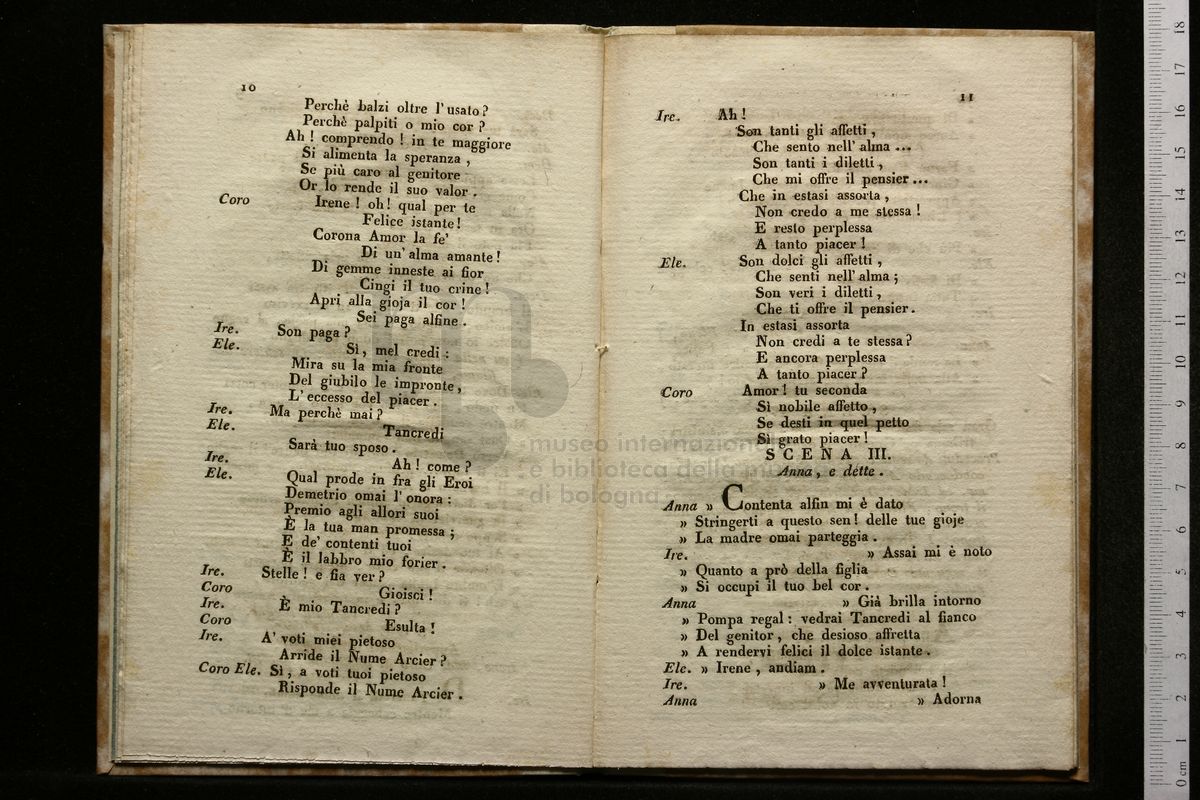 10
Perchè balzi oltre l'usato?
Perchè palpiti o mio cor?
Ah! comprendo! in te maggiore
Si alimenta la speranza,
Se più caro al genitore
Or lo rende il suo valor.
Coro Irene! oh! qual per te
Felice istante!
Corona Amor la fe'
Di un' alma amante!
Di gemme inneste ai fior
Cingi il tuo crine!
Apri alla gioja il cor!
Sei paga alfine.
Ire. Son paga?
Ele. Sì, mel credi:
Mira su la mia fronte
Del giubilo le impronte,
L'eccesso del piacer.
Ire. Ma perchè mai?
Ele. Tancredi
Sarà tuo sposo.
Ire. Ah! come?
Ele. Qual prode in fra gli Eroi
Demetrio omai l'onora:
Premio agli allori suoi
È la tua man promessa;
E de' contenti tuoi
È il labbro mio forier.
Ire. Stelle! e fia ver?
Coro Gioisci!
Ire. È mio Tancredi?
Coro Esulta!
Ire. A' voti miei pietoso
Arride il Nume Arcier?
Coro Ele. Sì, a voti tuoi pietoso
Risponde il Nume Arcier.
11
Ire. Ah!
Son tanti gli affetti,
Che sento nell' alma ...
Son tanti i diletti,
Che mi offre il pensier ...
Che in estasi assorta,
Non credo a me stessa!
E resto perplessa
A tanto piacer!
Ele. Son dolci gli affetti,
Che senti nell' alma;
Son veri i diletti,
Che ti offre il pensier.
In estasi assorta
Non credi a te stessa?
E ancora perplessa
A tanto piacer?
Coro Amor! tu seconda
Sì nobile affetto,
Se desti in quel petto
Sì grato piacer!
SCENA III.
Anna, e dette.
Anna » Contenta alfin mi è dato
» Stringerti a questo sen! delle tue gioje
» La madre omai parteggia.
Ire. » Assai mi è noto
» Quanto a prò della figlia
» Si occupi il tuo bel cor.
Anna » Già brilla intorno
» Pompa regal: vedrai Tancredi al fianco
» Del genitor, che desioso affretta
» A rendervi felici il dolce istante.
Ele. » Irene, andiam.
Ire. » Me avventurata!
Anna » Adorna
museo internazion
e biblioteca della mu
di bologna
0 cm 1 2 3 4 5 6 7 8 9 10 11 12 13 14 15 16 17 18